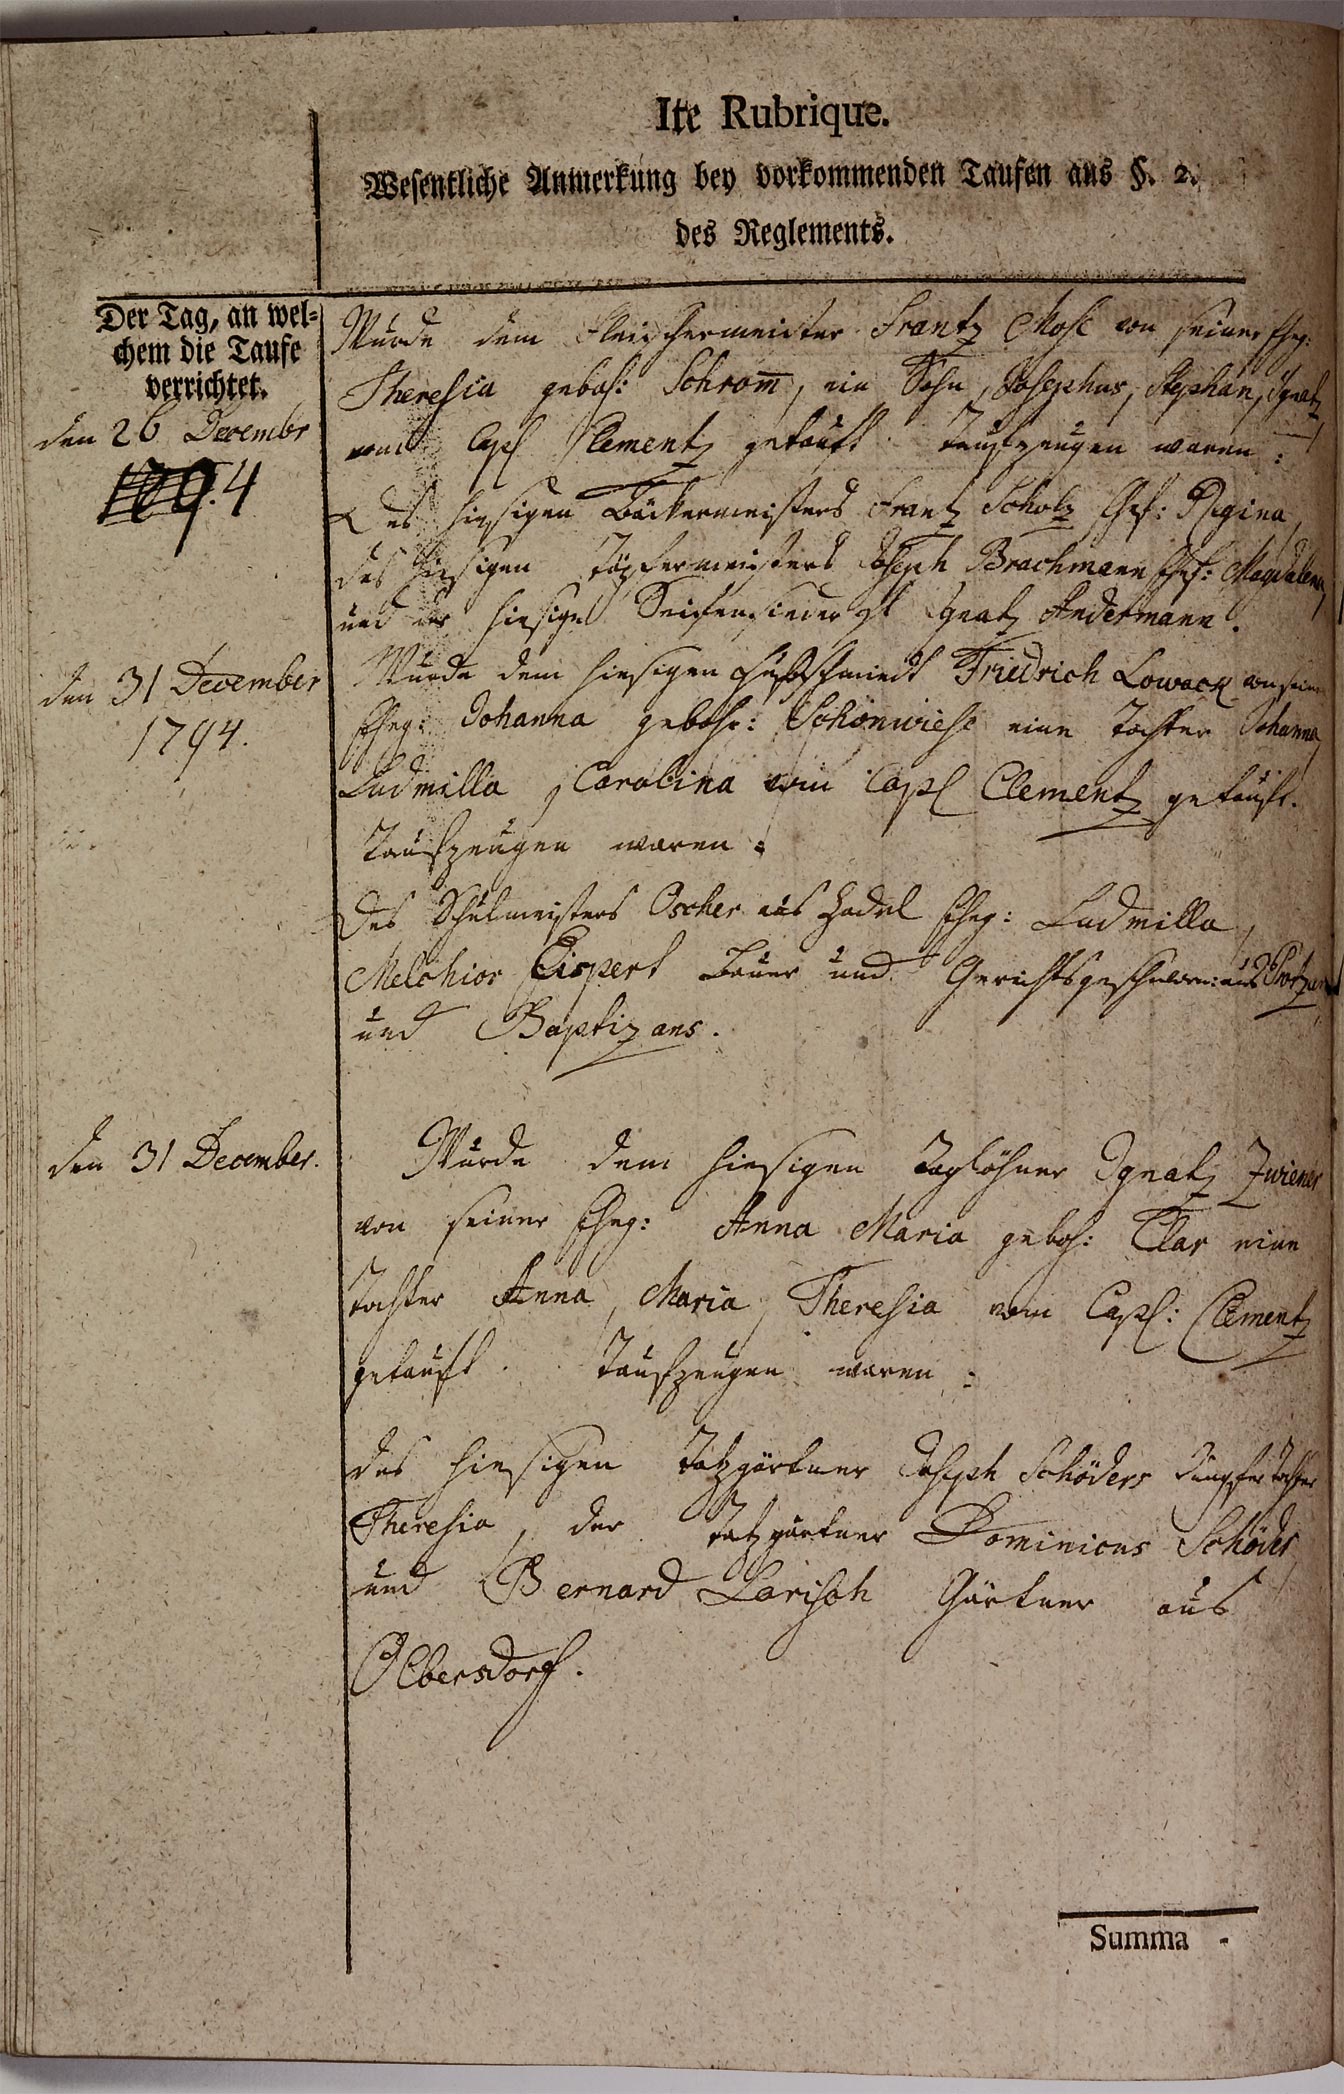 Ite Rubrique.
Wesentliche Anmerkung bey vorkommenden Taufen aus §. 2.
des Reglements.
Der Tag, an wel-
chem die Taufe
verrichtet.
den 26 Decembr
179.4
Wurde dem Fleischermeister Frantz Mose von seiner Eheg:
Theresia geboh: Schrom̅, ein Sohn, Josephus, Stephan, Ignatz
vom Capl Clementz getauft. Taufzeugen waren:
Des hiesigen Bäckermeisters Frantz Scholz Ehef: Regina,
des hiesigen Töpfermeisters Joseph Brachmann Ehef: Magdalena,
und der hiesige Seifensieder Ignatz Andermann.
den 31 December
1794.
Wurde dem hiesigen Hufschmiedt Friedrich Lowack von seiner
Eheg: Johanna gebohr: Schönwiese eine Tochter Johanna,
Ludmilla, Carolina vom Capl Clementz getauft.
Taufzeugen waren:
Des Schulmeisters Oscher aus Zadel Eheg: Ludmilla,
Melchior Eispert Bauer und Gerichtsgeschworn: aus Protzan
und Baptizans.
den 31 December.
Wurde dem hiesigen Taglöhner Ignatz Zwiener
von seiner Eheg: Anna Maria geboh: Klar eine
Tochter Anna, Maria, Theresia vom Capl: Clementz
getauft. Taufzeugen waren:
des hiesigen Joseph Schöders Jungfer Tochter
Theresia, der Dominicus Schöder,
und Bernard Larisch Gärtner aus
Olbersdorf.
Summa -